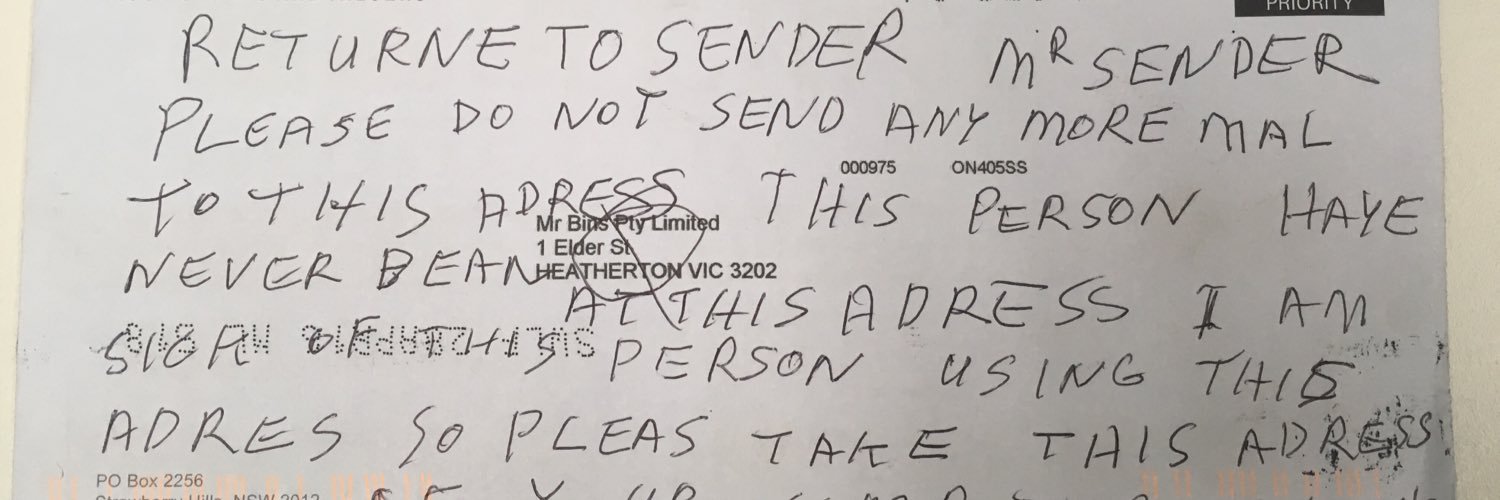 PRIORITY
RETURNE TO SENDER MR SENDER
PLEASE DO NOT SEND ANY MORE MAL
000975 ON405SS
TO THIS ADRESS THIS PERSON HAVE
Mr Bins Pty Limited
1 Elder St
NEVER BEAN
HEATHERTON VIC 3202
AT THIS ADRESS I AM
SICH OF THIS PERSON USING THIS
ADRES SO PLEAS TAKE THIS ADRESS
PO Box 2256
Strawberry Hills NSW 2012